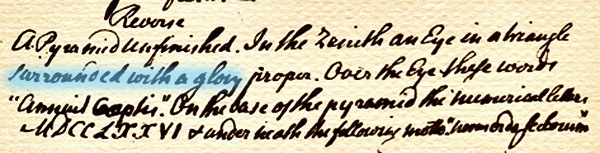 Reverse
A Pyramid Unfinished. In the Zenith an Eye in a triangle
surrounded with a glory proper. Over the Eye these words
"Annuit Cœptis". On the base of the pyramid the numerical letters
MDCCLXXVI & underneath the following motto. "novus ordo seclorum"